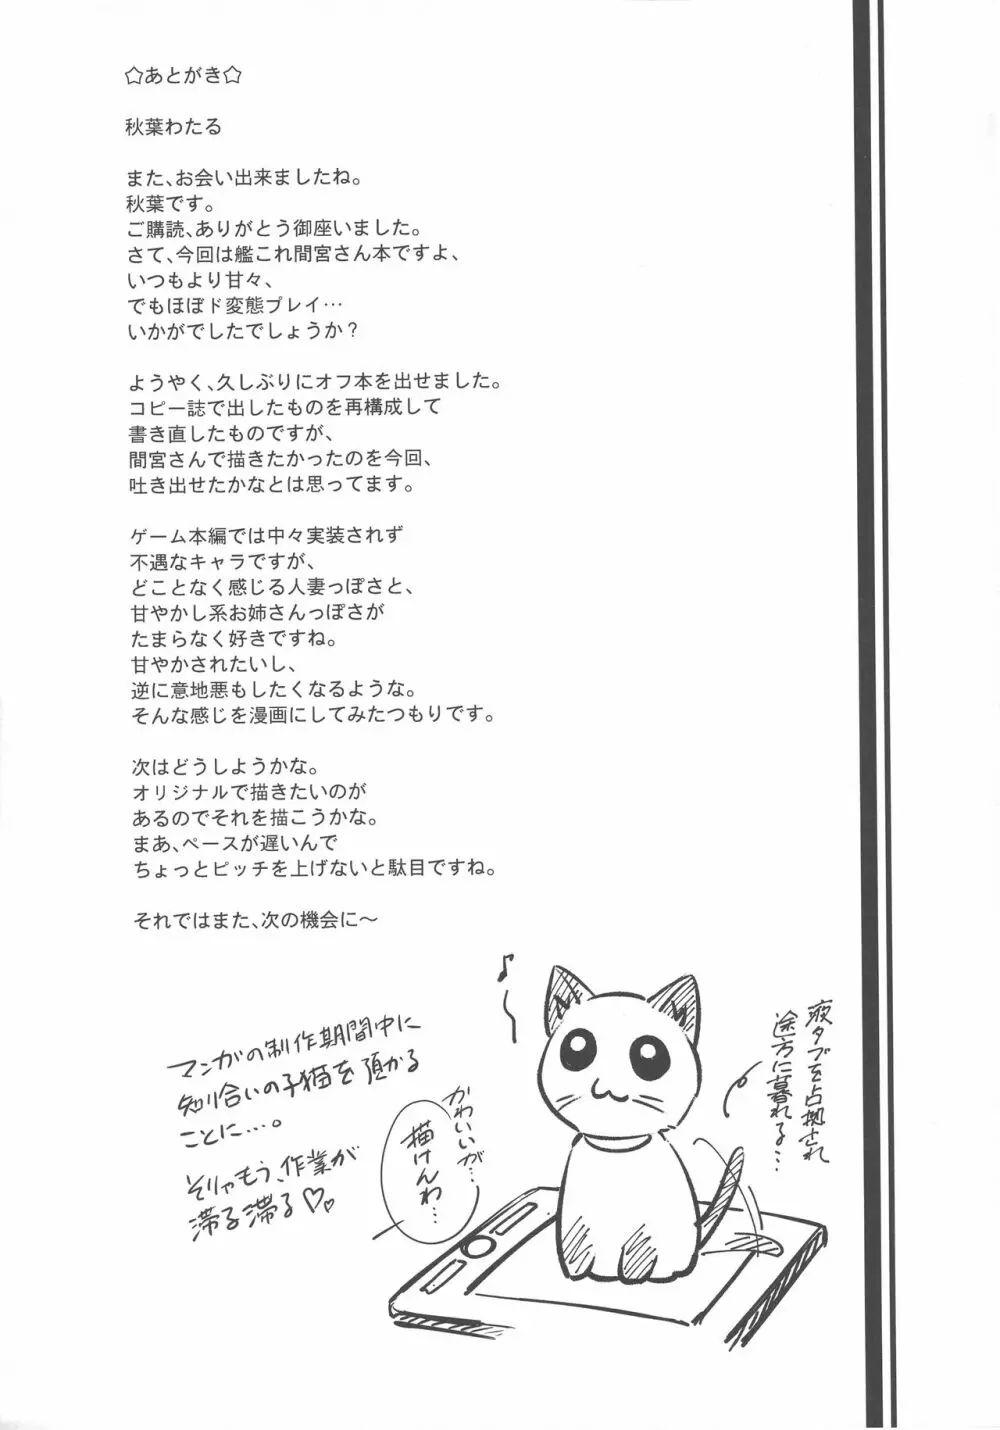 ☆あとがき☆
秋葉わたる
また、お会い出来ましたね。
秋葉です。
ご購読、ありがとう御座いました。
さて、今回は艦これ間宮さん本ですよ、
いつもより甘々、
でもほぼド変態プレイ…
いかがでしたでしょうか？
ようやく、久しぶりにオフ本を出せました。
コピー誌で出したものを再構成して
書き直したものですが、
間宮さんで描きたかったのを今回、
吐き出せたかなとは思ってます。
ゲーム本編では中々実装されず
不遇なキャラですが、
どことなく感じる人妻っぽさと、
甘やかし系お姉さんっぽさが
たまらなく好きですね。
甘やかされたいし、
逆に意地悪もしたくなるような。
そんな感じを漫画にしてみたつもりです。
次はどうしようかな。
オリジナルで描きたいのが
あるのでそれを描こうかな。
まあ、ペースが遅いんで
ちょっとピッチを上げないと駄目ですね。
それではまた、次の機会に～
マンガの制作期間中に
知り合いの子猫を預かる
ことに…。
そりゃもう、作業が
滞る滞る♡♡
かわいいが…
描けんわ…
♪
液タブを占拠され
途方に暮れる…